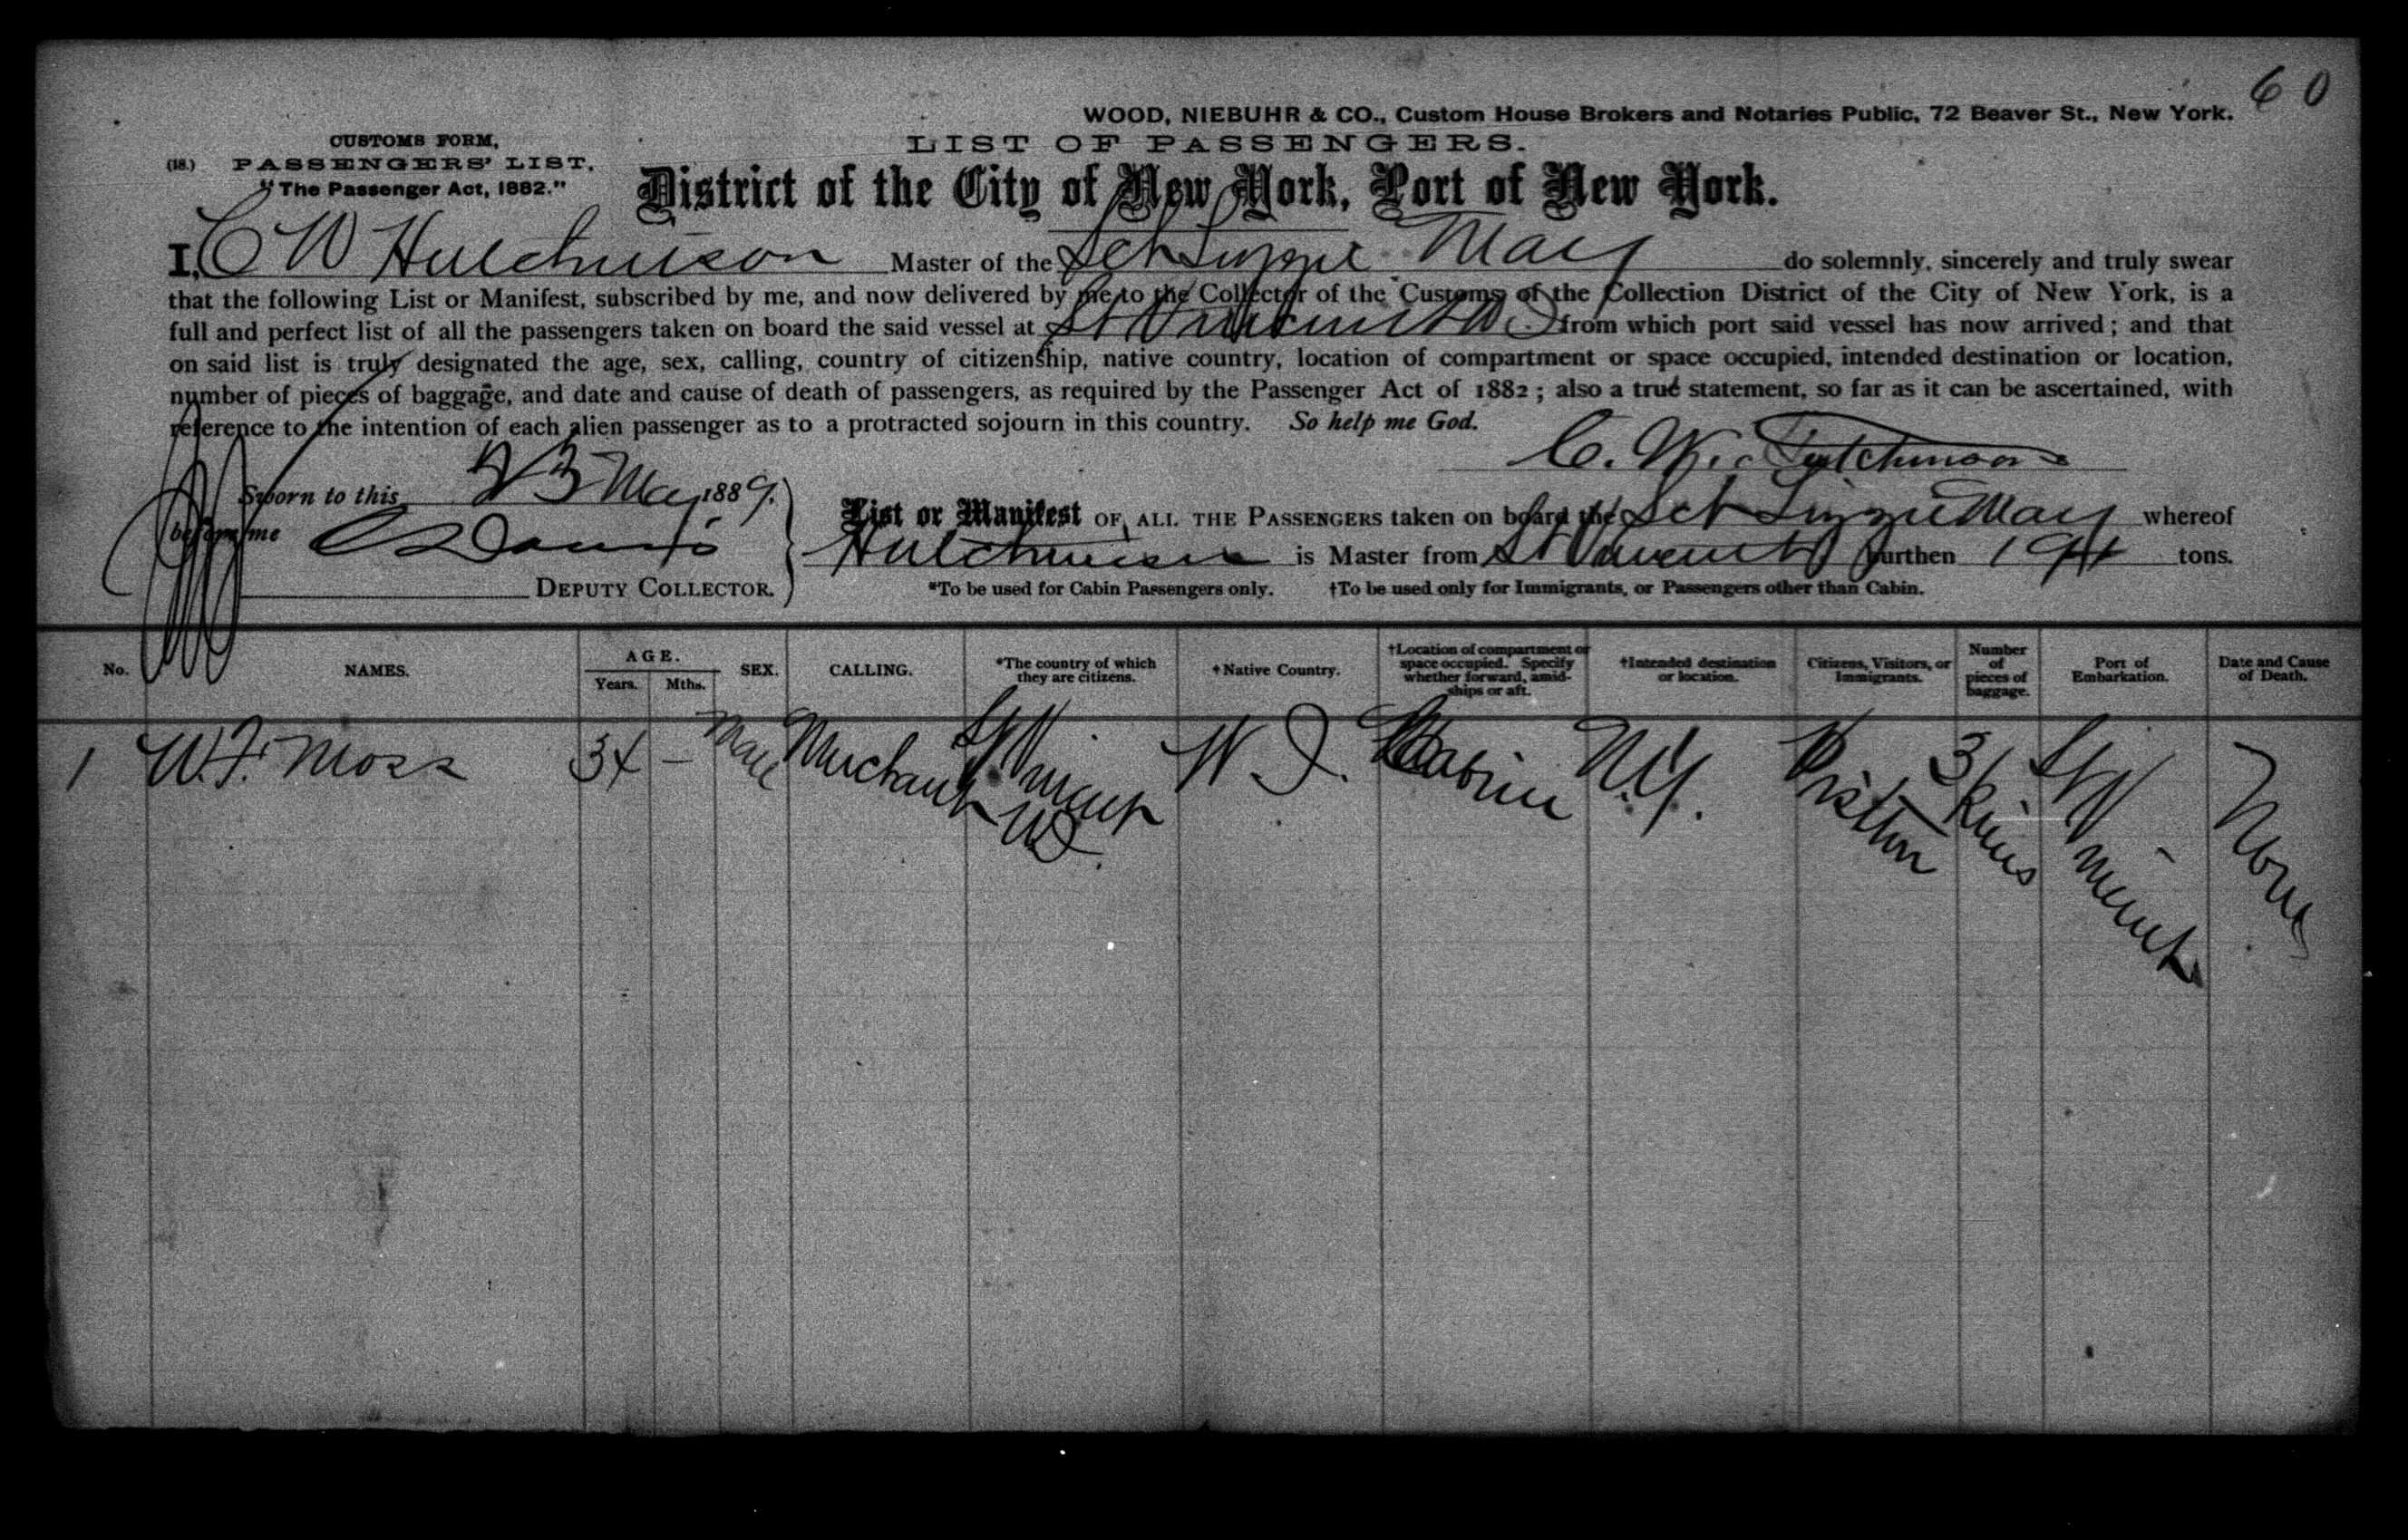 60
WOOD, NIEBUHR & CO., Custom House Brokers and Notaries Public, 72 Beaver St., New York.
CUSTOMS FORM,
LIST OF PASSENGERS.
(18.) PASSENGERS' LIST.
"The Passenger Act, 1882."
District of the City of New York, Port of New York.
I, C W Hutchinson Master of the Sch Lizzie May do solemnly, sincerely and truly swear
that the following List or Manifest, subscribed by me, and now delivered by me to the Collector of the Customs of the Collection District of the City of New York, is a
full and perfect list of all the passengers taken on board the said vessel at St Vincent W.I. from which port said vessel has now arrived; and that
on said list is truly designated the age, sex, calling, country of citizenship, native country, location of compartment or space occupied, intended destination or location,
number of pieces of baggage, and date and cause of death of passengers, as required by the Passenger Act of 1882; also a true statement, so far as it can be ascertained, with
reference to the intention of each alien passenger as to a protracted sojourn in this country. So help me God.
C. W. Hutchinson
Sworn to this 23 May 1889.
before me
DEPUTY COLLECTOR.
List or Manifest OF ALL THE PASSENGERS taken on board the Sch Lizzie May whereof
Hutchinson is Master from St Vincent burthen tons.
*To be used for Cabin Passengers only. †To be used only for Immigrants, or Passengers other than Cabin.
No. NAMES. AGE. Years. Mths. SEX. CALLING. *The country of which they are citizens. †Native Country. †Location of compartment or space occupied. Specify whether forward, amidships or aft. †Intended destination or location. Citizens, Visitors, or Immigrants. Number of pieces of baggage. Port of Embarkation. Date and Cause of Death.
1 W. F. Moss 34 – Male Merchant St Vincent W.I. W I. Cabin N.Y. Visitor 3 St Vincent None